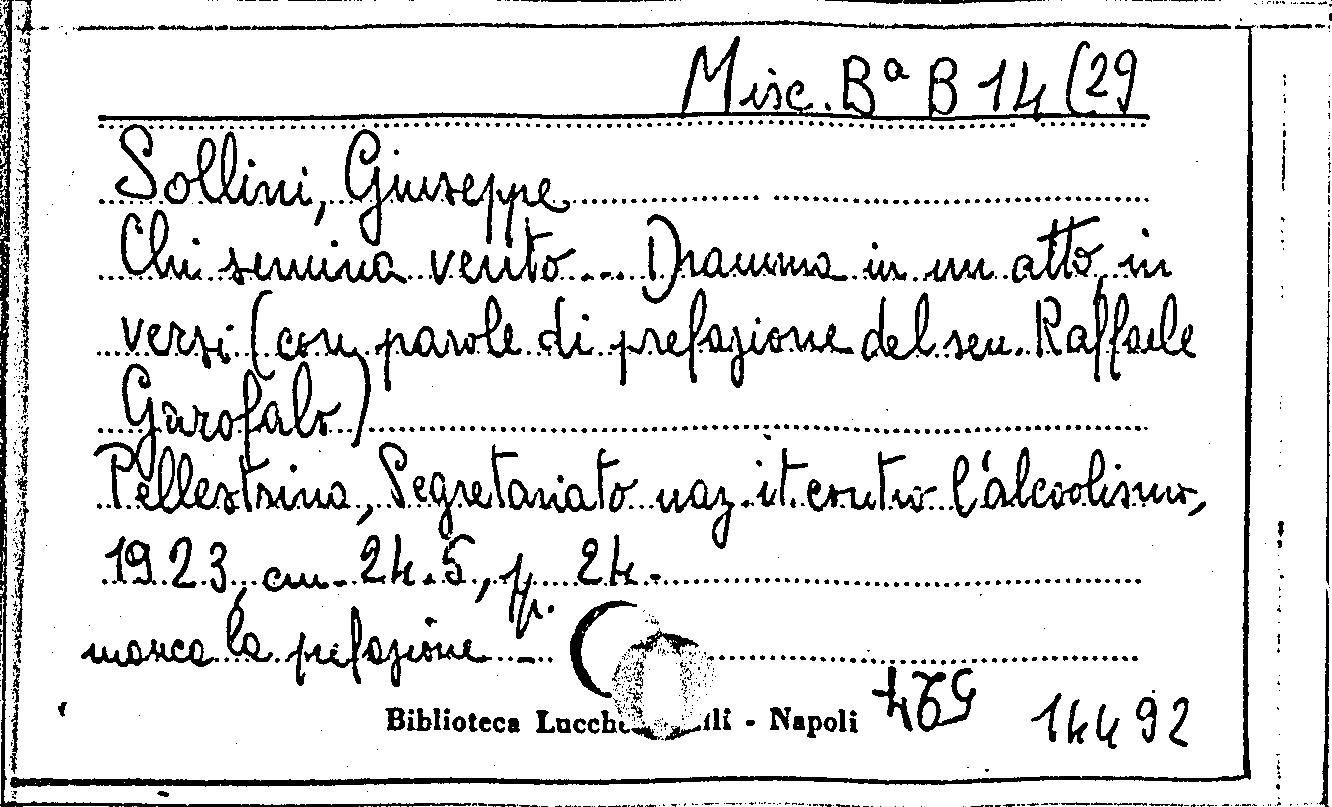 Misc. Bª B 14 (29
Sollini, Giuseppe
Chi semina vento... Dramma in un atto, in
versi (con parole di prefazione del sen. Raffaele
Garofalo)
Pellestrina, Segretariato naz. it. contro l'alcoolismo,
1923, cm. 24.5, pp. 24.
manca la prefazione
Biblioteca - Napoli
14492